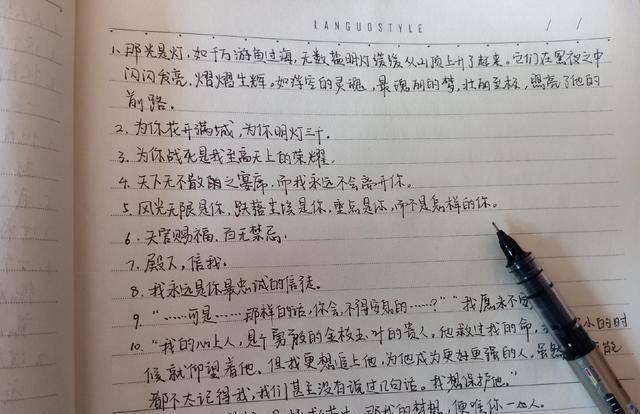 LANGUOSTYLE / /
1、那光是灯,如千万游鱼过海,无数盏明灯缓缓从山顶上升了起来。它们在黑夜之中
闪闪发亮,熠熠生辉。如浮空的灵魂,最瑰丽的梦,壮丽至极,照亮了他的
前路。
2. 为你花开满城,为你明灯三千。
3. 为你战死是我至高无上的荣耀.
4. 天下无不散的之宴席,而我永远不会离开你。
5. 风光无限是你,跌落尘埃是你,重点是你,而不是怎样的你。
6. 天官赐福,百无禁忌.
7. 殿下,信我。
8. 我永远是你最忠诚的信徒。
9. “……可是……那样的话,你会,不得安息的……?”“我愿永不安
10. “我的心上人,是个勇敢的金枝玉叶的贵人。他救过我的命,小的时
候就仰望着他。但我更想追上他,为他成为更好更强的人。虽然 能
都不太记得我,我们甚至没有说过几句话。我想保护他。”
那我的梦想,便唯你一人。